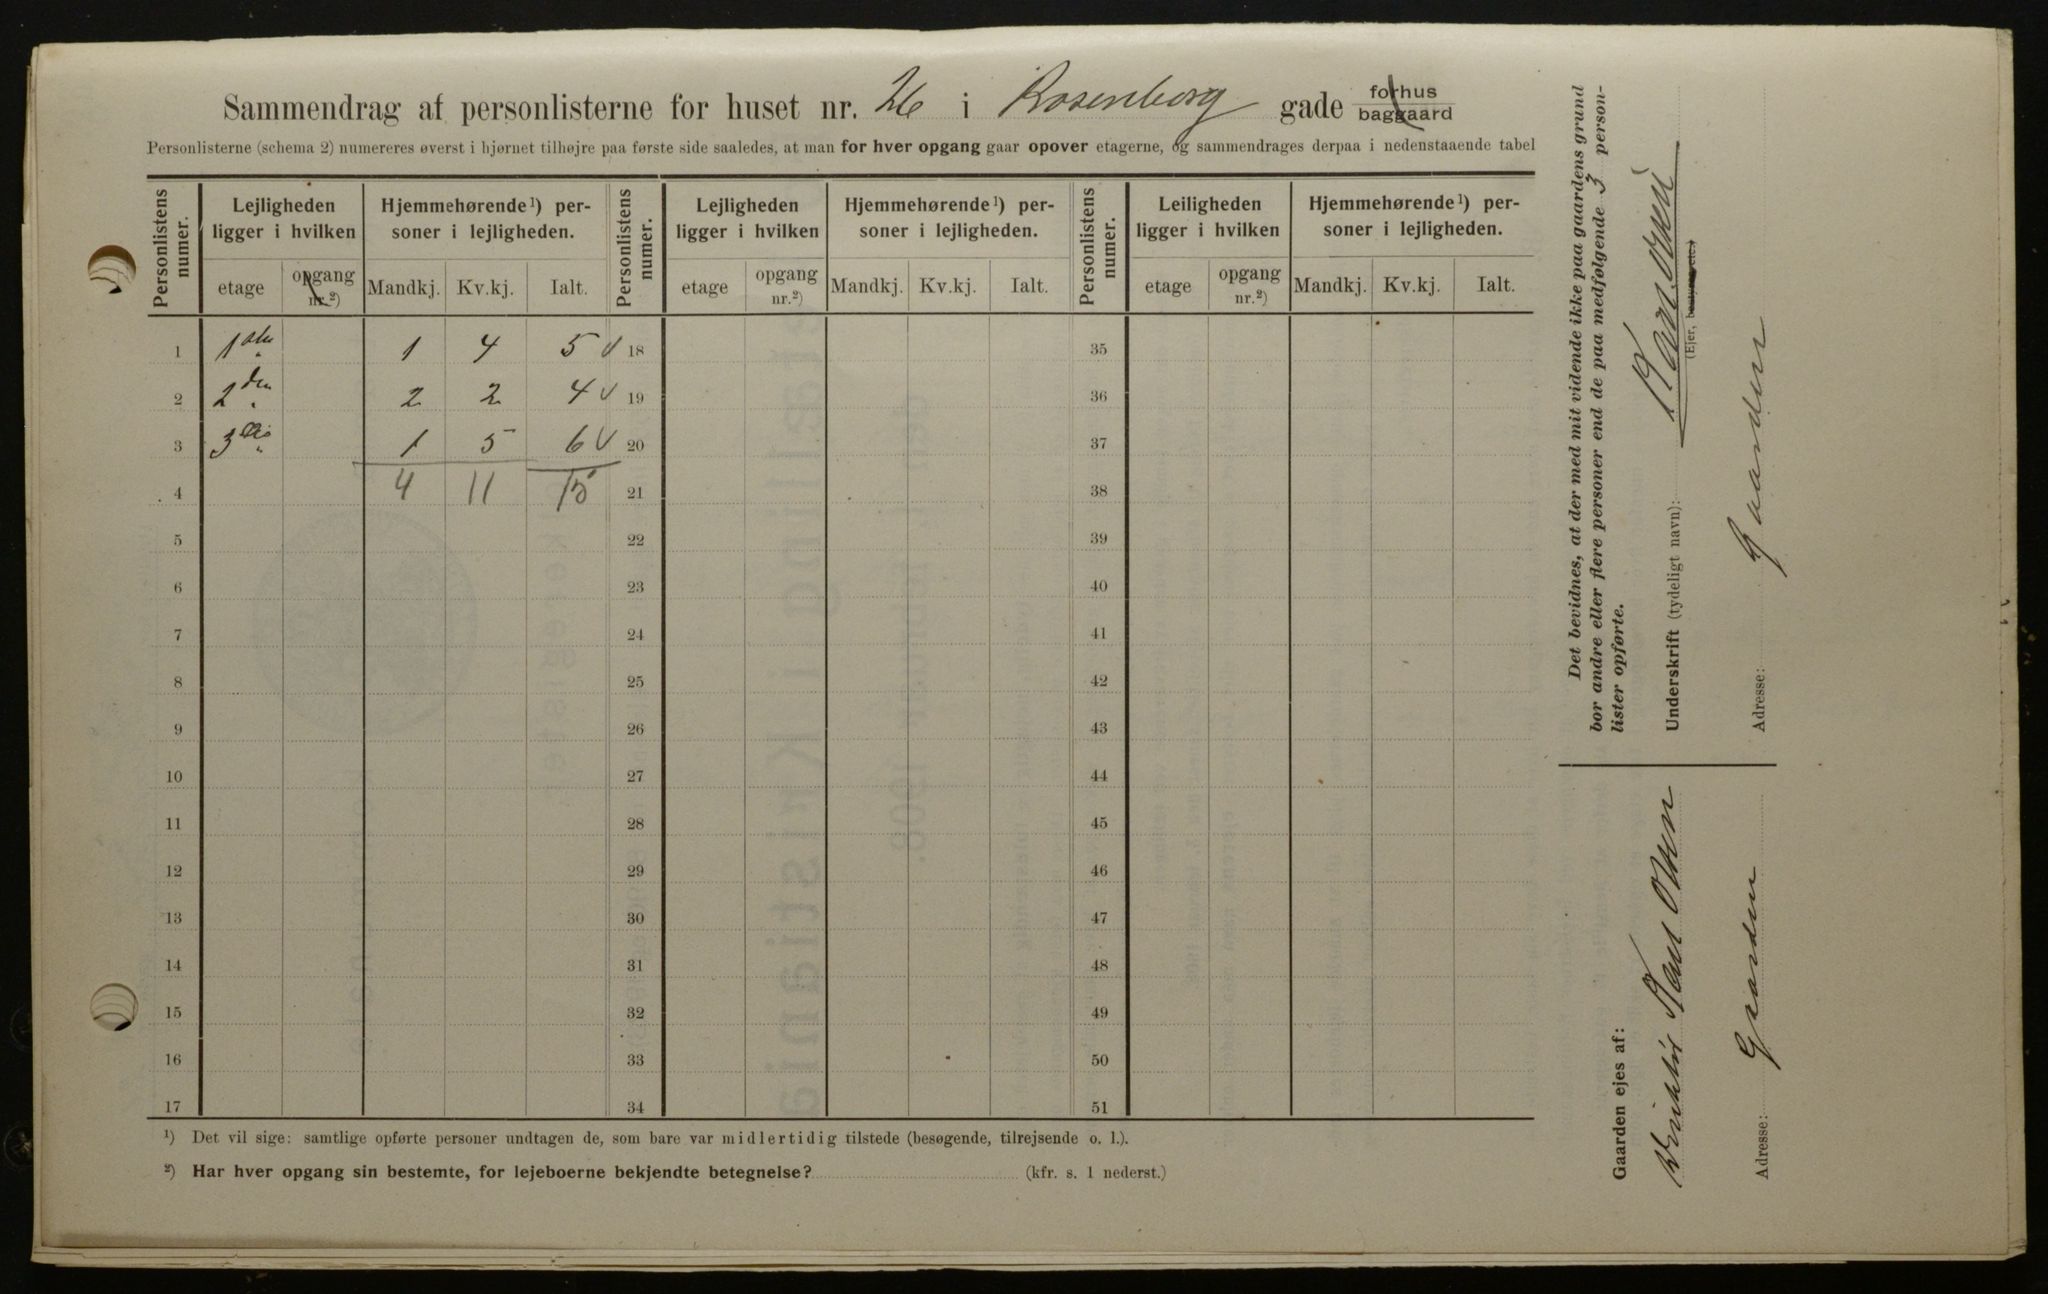 Sammendrag af personlisterne for huset nr. 26 i Rosenborg gade forhus baggaard
Personlisterne (schema 2) numereres øverst i hjørnet tilhøjre paa første side saaledes, at man for hver opgang gaar opover etagerne, og sammendrages derpaa i nedenstaaende tabel
Personlistens numer. Lejligheden ligger i hvilken Hjemmehørende¹) personer i lejligheden. Personlistens numer. Lejligheden ligger i hvilken Hjemmehørende¹) personer i lejligheden. Personlistens numer. Leiligheden ligger i hvilken Hjemmehørende¹) personer i lejligheden.
etage opgang nr.²) Mandkj. Kv.kj. Ialt. etage opgang nr.²) Mandkj. Kv.kj. Ialt. etage opgang nr.²) Mandkj. Kv.kj. Ialt.
1 1ste 1 4 5 18 35
2 2den 2 2 4 19 36
3 3die 1 5 6 20 37
4 4 11 15 21 38
5 22 39
6 23 40
7 24 41
8 25 42
9 26 43
10 27 44
11 28 45
12 29 46
13 30 47
14 31 48
15 32 49
16 33 50
17 34 51
¹) Det vil sige: samtlige opførte personer undtagen de, som bare var midlertidig tilstede (besøgende, tilrejsende o. l.).
²) Har hver opgang sin bestemte, for lejeboerne bekjendte betegnelse? (kfr. s. 1 nederst.)
Det bevidnes, at der med mit vidende ikke paa gaardens grund
bor andre eller flere personer end de paa medfølgende 3 person-
lister opførte.
Underskrift (tydeligt navn):
(Ejer, bestyrer etc.)
Adresse: Gaarden
Gaarden ejes af:
Olsen
Adresse: Gaarden